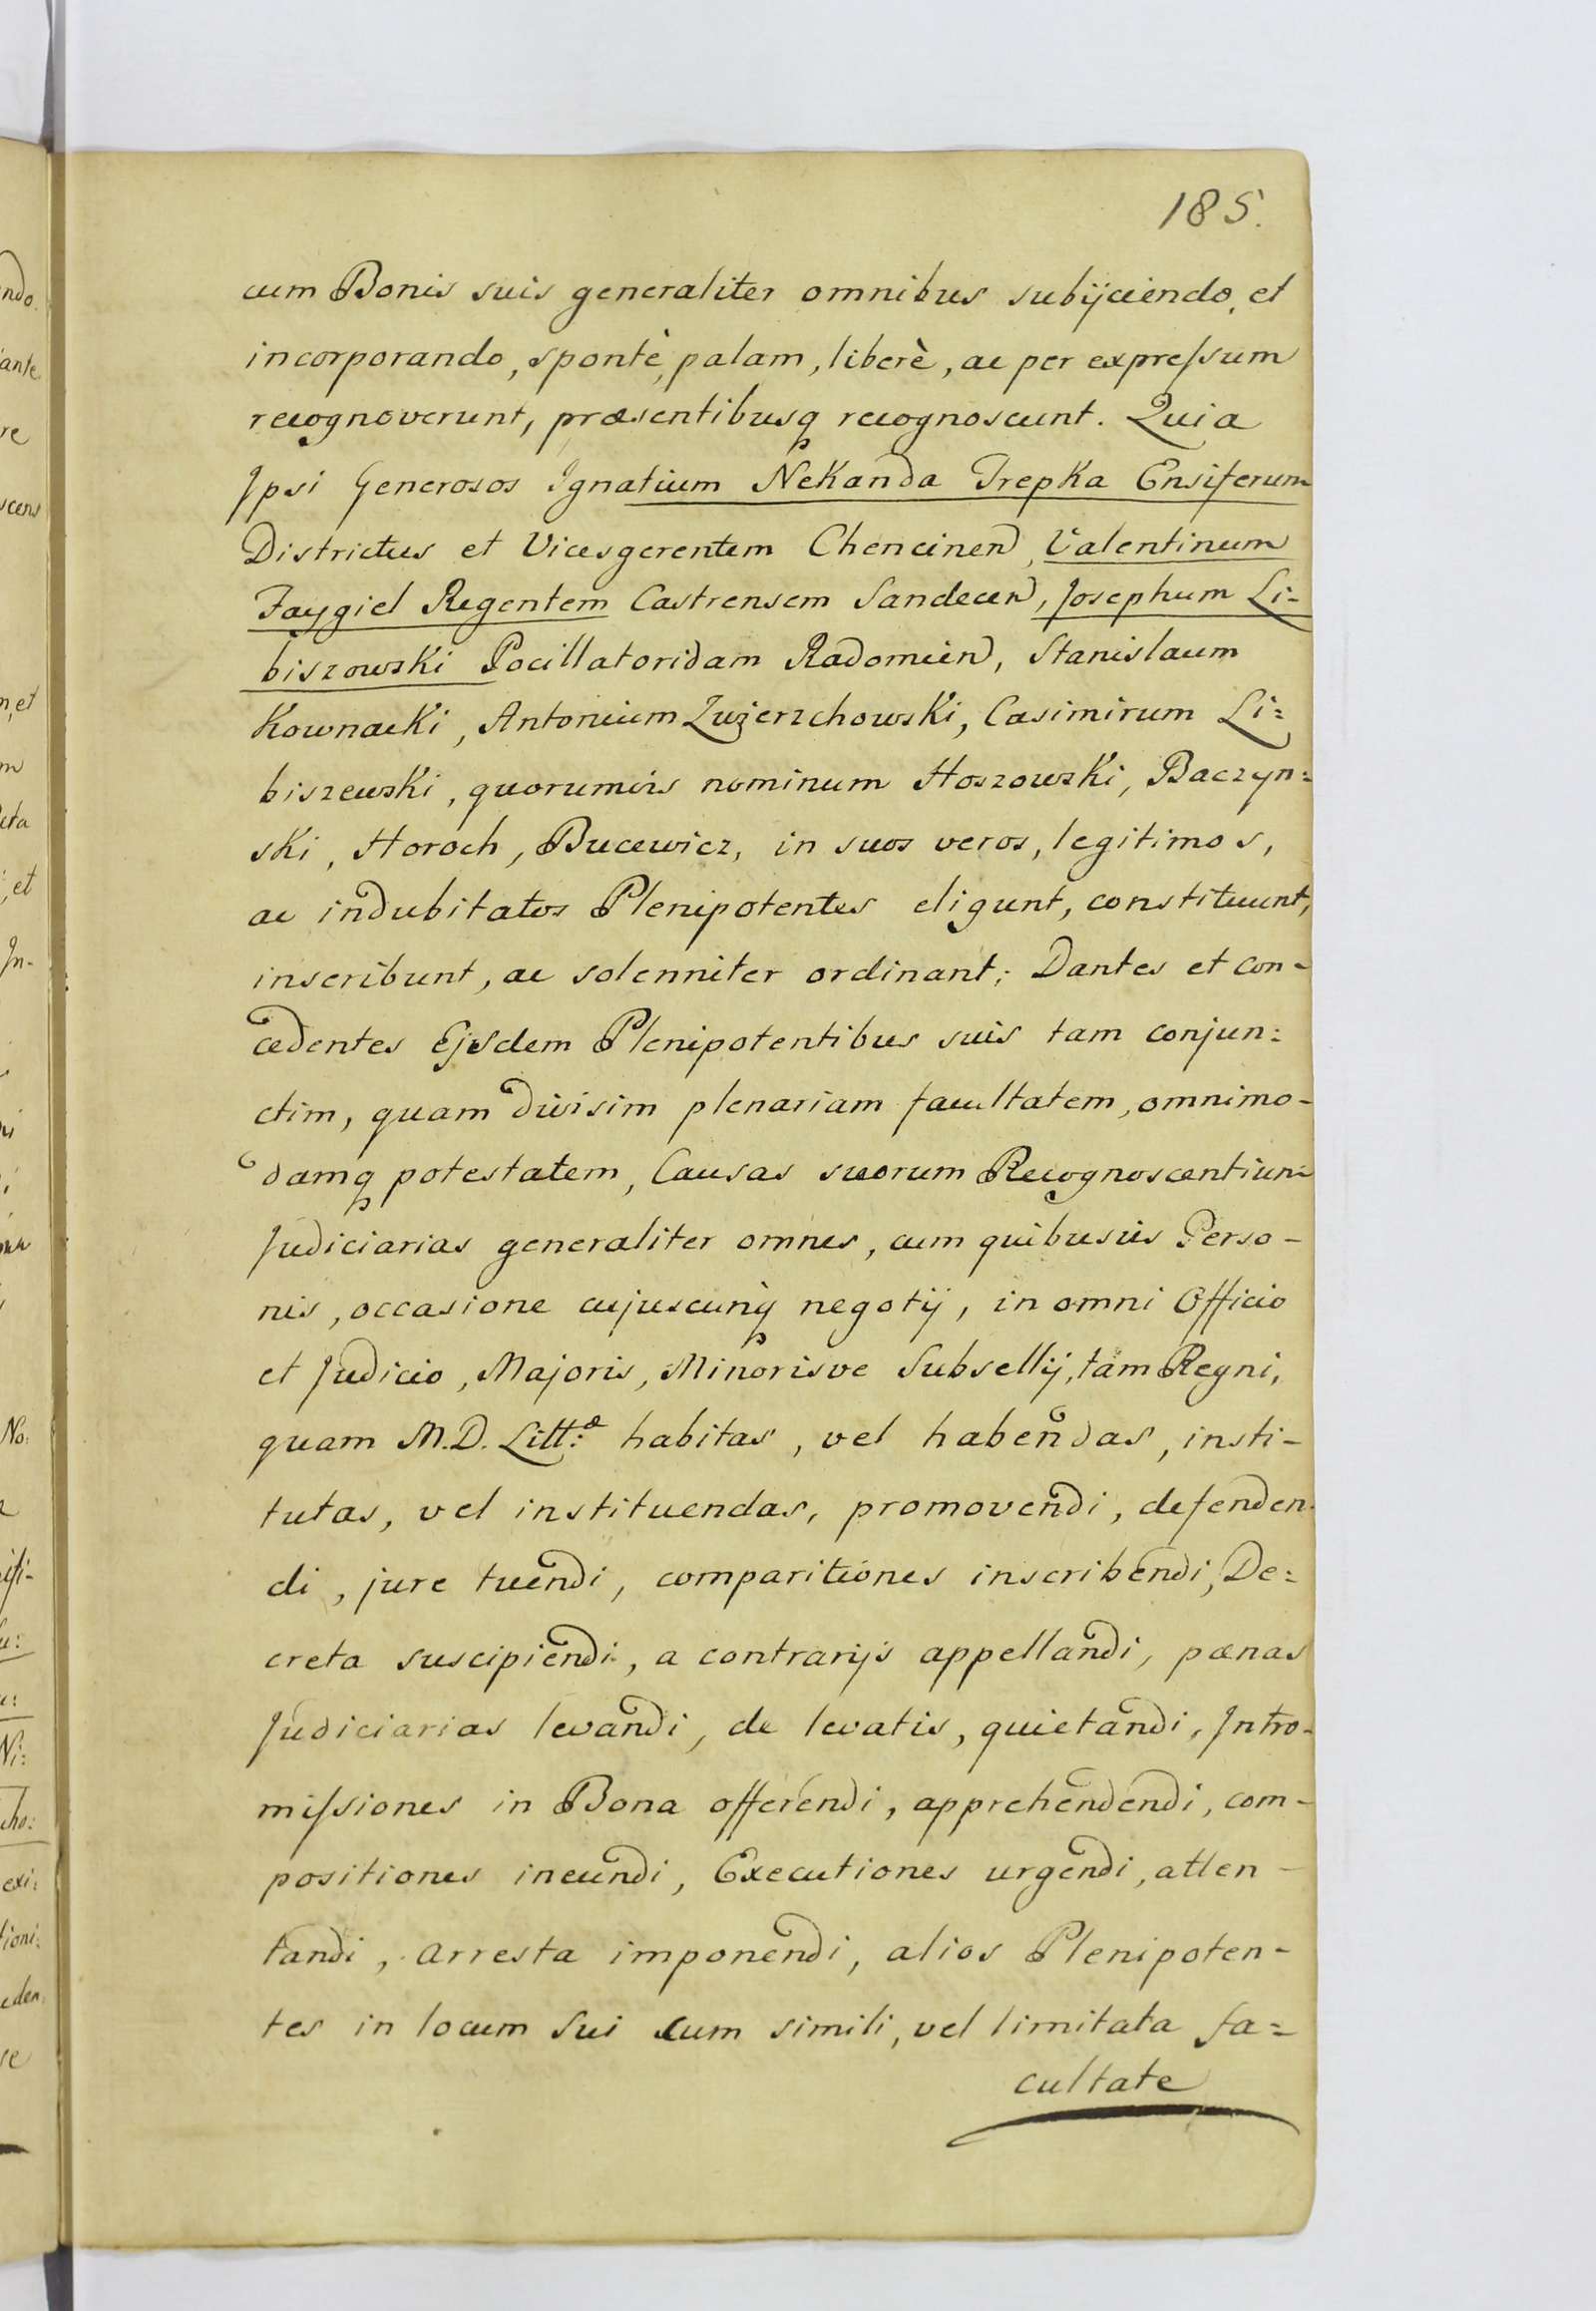 185.
cum Bonis suis generaliter omnibus subijciendo, et
incorporando, spontè, palam, liberè, ac per expreſsum
recognoverunt, præsentibusq recognoscunt. Quia
Ipsi Generosos Ignatium Nekanda Trepka Ensiferum
Districtus et Vicesgerentem Chencinen, Valentinum
Faygiel Regentem Castrensem Sandecen, Josephum Li-
biszowski Pocillatoridam Radomien, Stanislaum
Kownacki, Antonium Zwierzchowski, Casimirum Li=
biszewski, quorumvis nominum Hoszowski, Baczyn=
ski, Horoch, Bucewicz, in suos veros, legitimos,
ac indubitatos Plenipotentes eligunt, constituunt,
inscribunt, ac solenniter ordinant; Dantes et con-
cedentes Ejsdem Plenipotentibus suis tam conjun=
ctim, quam divisim plenariam facultatem, omnimo-
damq potestatem, Causas suorum Recognoscentium
Judiciarias generaliter omnes, cum quibusvis Perso-
nis, occasione cujuscunq negotij, in omni Officio
et Judicio, Majoris, Minorisve Subsellij, tam Regni,
quam M.D. Litt:æ habitas, vel habendas, insti-
tutas, vel instituendas, promovendi, defenden-
di, jure tuendi, comparitiones inscribendi, De=
creta suscipiendi, a contrarijs appellandi, pænas
Judiciarias levandi, de levatis, quietandi, Intro-
miſsiones in Bona offerendi, apprehendendi, com-
positiones ineundi, Executiones urgendi, atten-
tandi, arresta imponendi, alios Plenipoten-
tes in locum sui cum simili, vel limitata fa=
cultate